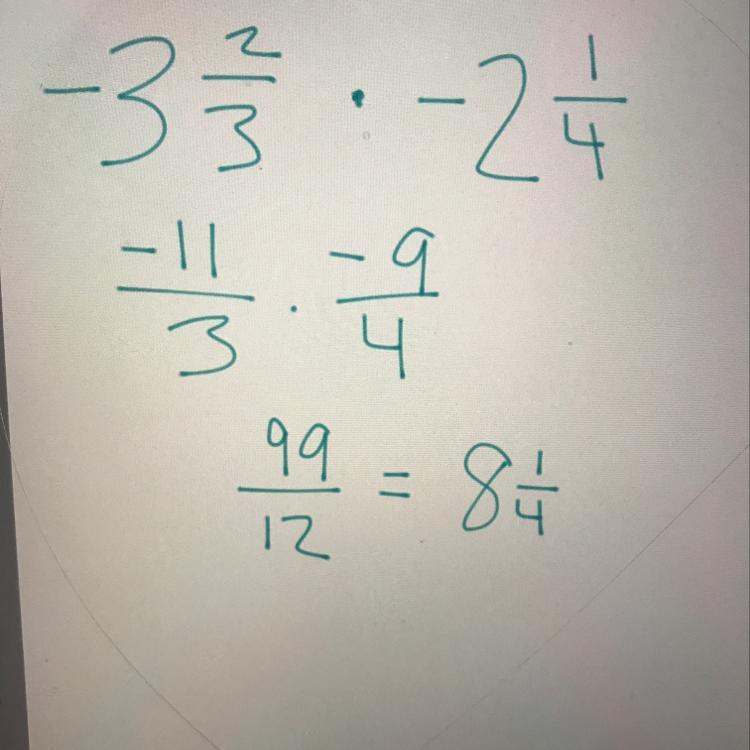 -3 2/3 · -2 1/4
-11/3 · -9/4
99/12 = 8 1/4